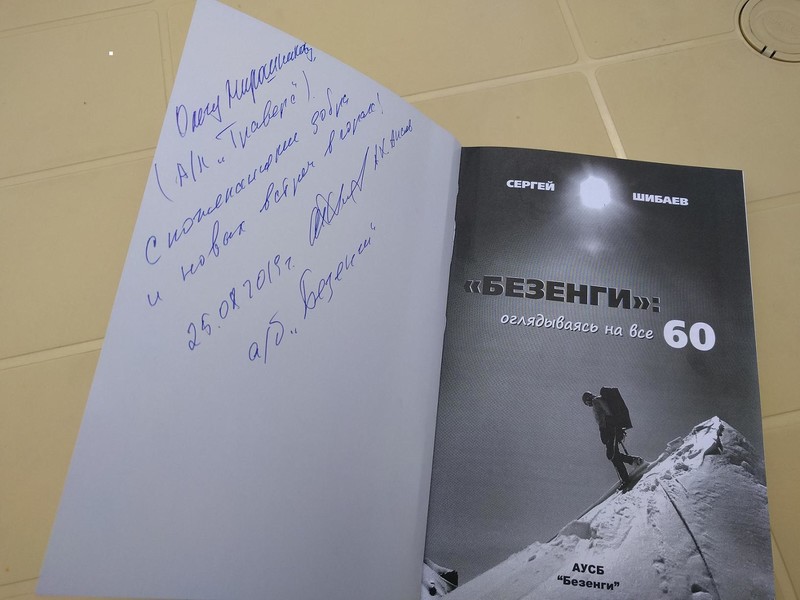 Олегу Мирошникову
(А/К „Траверс")
С пожеланиями добра
и новых встреч в горах!
25.08.2019г.
а/б „Безенги"
СЕРГЕЙ ШИБАЕВ
«БЕЗЕНГИ»:
оглядываясь на все 60
АУСБ
"Безенги"